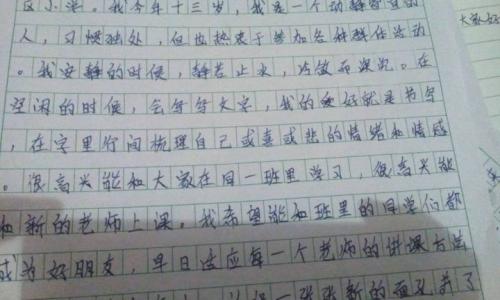 区小学。我今年十三岁,我是一个动静皆宜的
人,习惯独处,但也热衷于参加各种集体活动
。我安静的时候,静若止水,冷傲而淡定。在
空闲的时候,会写写文字,我的爱好就是书写
,在字里行间梳理自己或喜或悲的情绪和情感
。很高兴能和大家在同一班里学习,很高兴能
和新的老师上课。我希望能和班里的同学们都
成为好朋友,早日适应每一个老师的讲课方法
一张张新的面孔
大家好